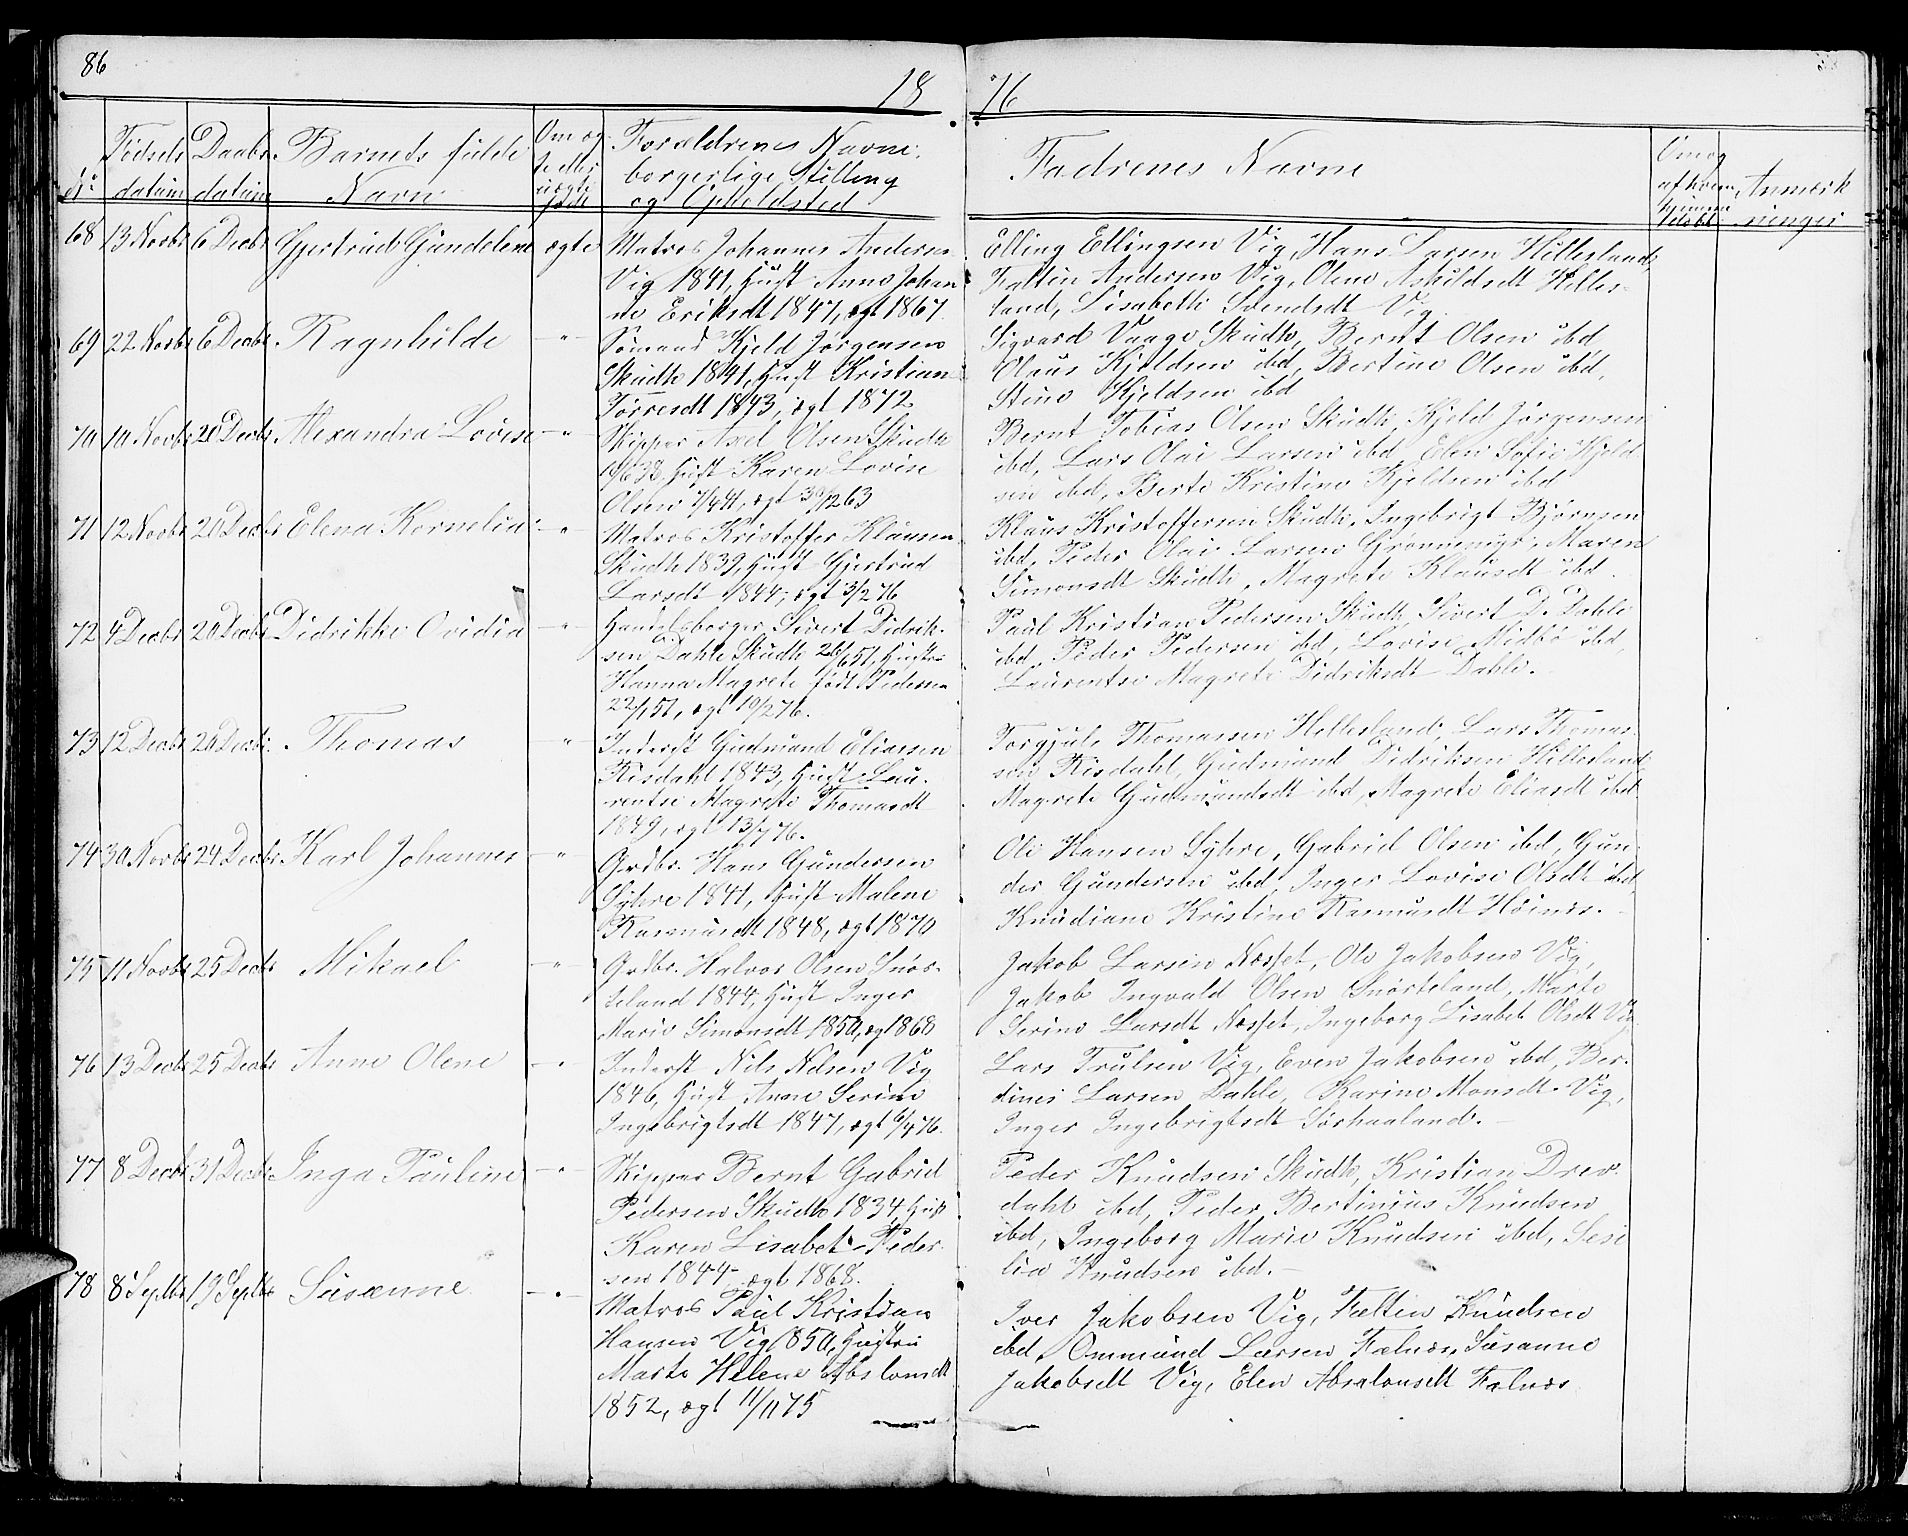 86
1876
No
Fødsels datum
Daabs datum
Barnets fulde Navn
Om ægte eller uægte født
Forældrenes Navne, borgerlige Stilling og Opholdsted
Fadrenes Navne
Om og af hvem hjemmedøbt
Anmærkninger
68 13 Novbr 6 Decbr Gjertrud Gundelene ægte
Matros Johannes Andersen
Vig 1841, Hust Anne Johan
ne Eriksdt 1847, ægt 1867.
Elling Ellingsen Vig, Hans Larsen Hillesland,
Faltin Andersen Vig, Olene Askildsdt Hilles-
land, Lisabeth Svendsdt Vig.
69 22 Novbr 6 Decbr Ragnhilde -"-
Sømand Kjeld Jørgensen
Skudh 1841, Hust Kristian
Torresdt 1843, ægt 1872
Sigvard Vaage Skudh, Bernt Olsen ibd
Olaus Kjeldsen ibd, Bertine Olsen ibd,
Stine Kjeldsen ibd
70 10 Novbr 20 Decbr Alexandra Lovise -"-
Skipper Axel Olsen Skudh
Hust Karen Lovise
Olsen 7/4 41, ægt 30/12 63
Bernt Tobias Olsen Skudh, Kjeld Jørgensen
ibd, Lars Olai Larsen ibd, Elen Sofie Kjeld
sen ibd, Berte Kristine Kjeldsen ibd
71 12 Novbr 20 Decbr Elena Kornelia -"-
Matros Kristoffer Klausen
Skudh 1839, Hust Gjertrud
Larsdt 1844, ægt 3/2 76
Klaus Kristoffersen Skudh, Ingebrigt Bjørnsen
ibd, Peder Olai Larsen Grønneviger, Maren
Simonsdt Skudh, Magrete Klausdt ibd.
72 4 Decbr 20 Decbr Didrikke Ovidia -"-
Handelsborger Sivert Didrik-
sen Dahle Skudh 26/6 51, Hustru
Hanna Magrete født Pedersen
22/1 51, ægt 10/2 76.
Paul Kristian Pedersen Skudh, Sivert D. Dahle
ibd, Peder Pedersen ibd, Lovise Midbø ibd,
Laurentse Magrete Didriksdt Dahle.
73 12 Decbr 20 Decbr Thomas -"-
Inderst Gudmund Eliassen
Risdahl 1843, Hust Lau-
rentse Magrete Thomasdt
1849, ægt 13/7 76.
Torgjuls Thomassen Hillesland, Lars Thomas
sen Risdahl, Gudmund Didriksen Hillesland
Magrete Gudmundsdt ibd, Magrete Eliasdt ibd
74 30 Novbr 24 Decbr Karl Johannes -"-
Grdbr. Hans Gundersen
Syhre 1841, Hust Malene
Rasmusdt 1848, ægt 1870
Ole Hansen Syhre, Gabriel Olsen ibd, Gun-
der Gundersen ibd, Inger Lovise Olsdt ibd
Knudiane Kristine Rasmusdt Høines.
75 11 Novbr 25 Decbr Mikael -"-
Grdbr. Halvor Olsen Snør-
teland 1844, Hust Inger
Marie Simonsdt 1850, ægt 1868
Jakob Larsen Næsset, Ole Jakobsen Vig,
Jakob Ingvald Olsen Snørteland, Marte
Serine Larsdt Næsset, Ingeborg Lisabet Olsdt Vig
76 13 Decbr 25 Decbr Anne Olene -"-
Inderst Nils Nilsen Vig
1846, Hust Anne Serine
Ingebrigtsdt 1847, ægt 6/4 76.
Lars Trulsen Vig, Even Jakobsen ibd, Ber-
dines Larsen Dahle, Karine Monsdt Vig,
Inger Ingebrigtsdt Sørhaaland.
77 8 Decbr 31 Decbr Inga Pauline -"-
Skipper Bernt Gabriel
Pedersen Skudh 1834, Hust
Karen Lisabet Peder
sen 1844, ægt 1868.
Peder Knudsen Skudh, Kristian Drev-
dahl ibd, Peder Bertinius Knudsen
ibd, Ingeborg Marie Knudsen ibd, Sesi
lia Knudsen ibd.
78 8 Septbr 19 Septbr Susanne -"-
Matros Paul Kristian
Hansen Vig 1850, Hustru
Marte Helene Abslonsdt
1852, ægt 11/11 75
Iver Jakobsen Vig, Faltin Knudsen
ibd, Ommund Larsen Falnæs, Susanne
Jakobsdt Vig, Elen Absalonsdt Falnæs